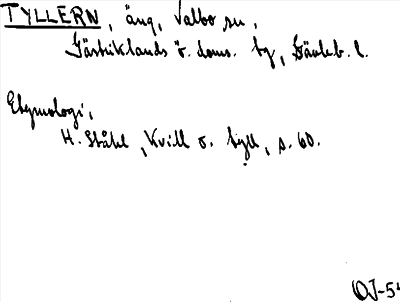 TYLLERN, äng, Valbo sn,
Gästriklands ö. doms. by, Gävleb. l.
Etymologi,
H. Ståhl, Kvill o. tyll, s. 60.
OJ-5